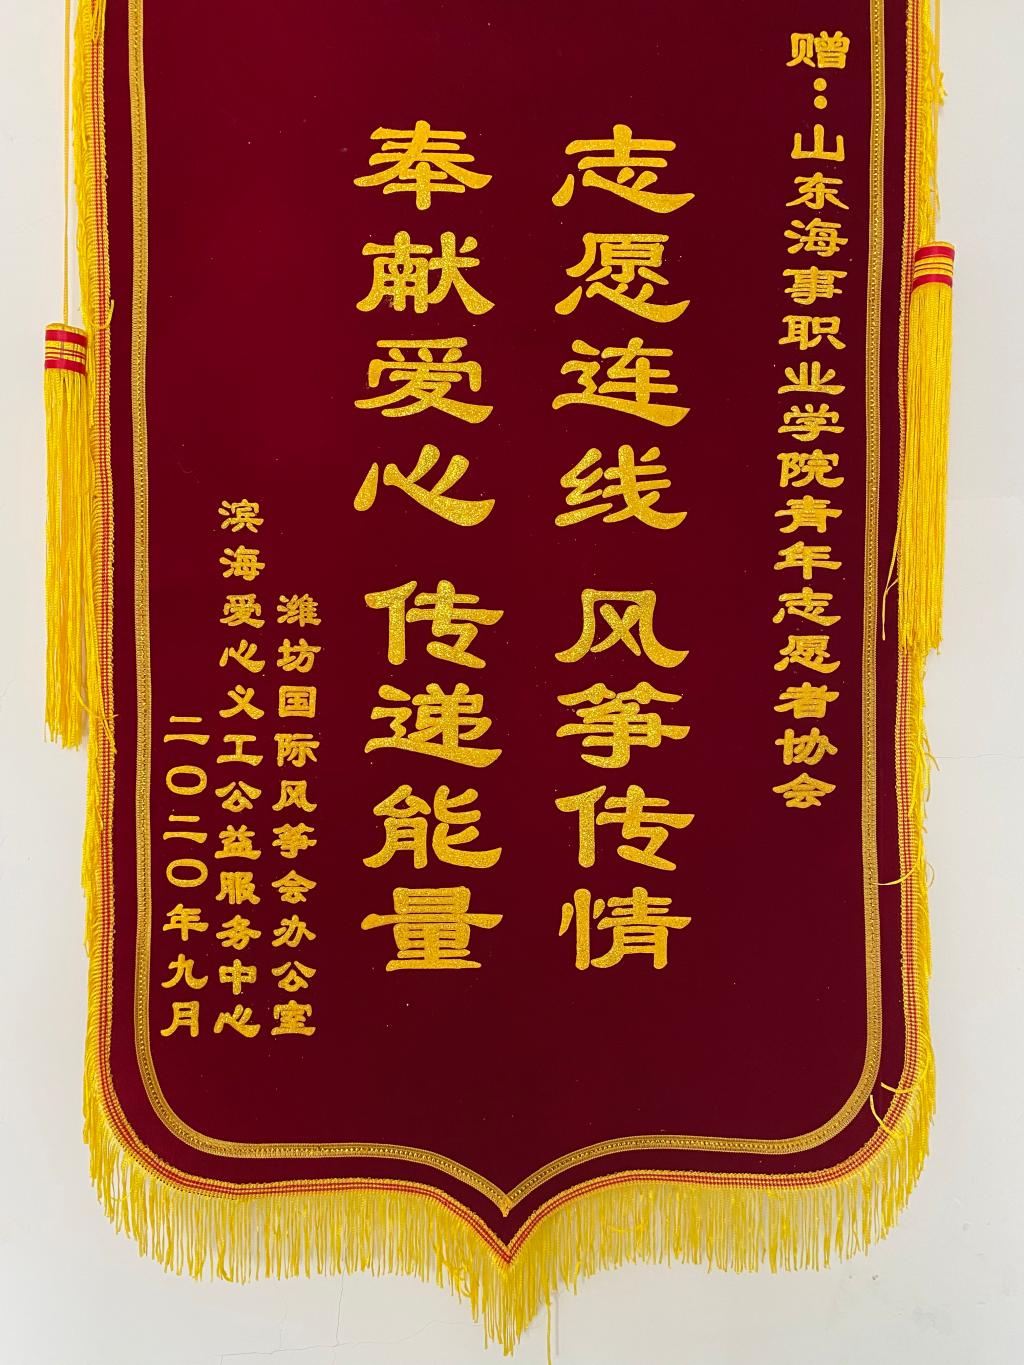 赠：山东海事职业学院青年志愿者协会
志愿连线 风筝传情
奉献爱心 传递能量
潍坊国际风筝会办公室
滨海爱心义工公益服务中心
二〇二〇年九月